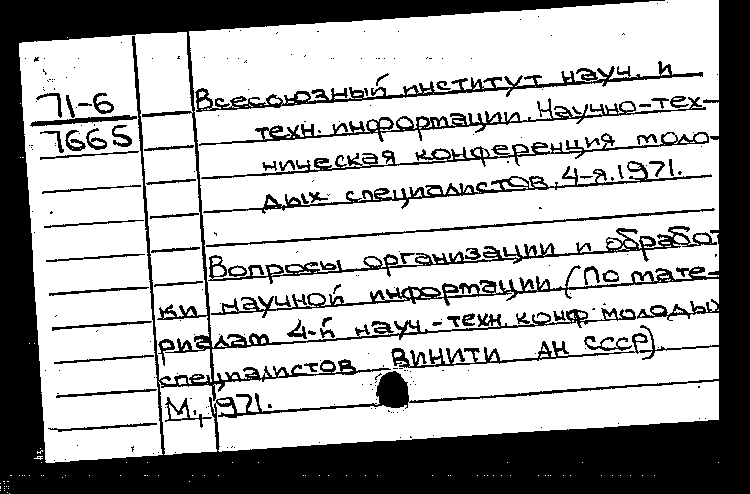 71-6
7665
Всесоюзный институт науч. и
техн. информации. Научно-тех-
ническая конференция моло-
дых специалистов, 4-я. 1971.
Вопросы организации и обработ
ки научной информации (По мате-
риалам 4-й науч.-техн. конф. молоды
специалистов ВИНИТИ АН СССР).
М., 1971.